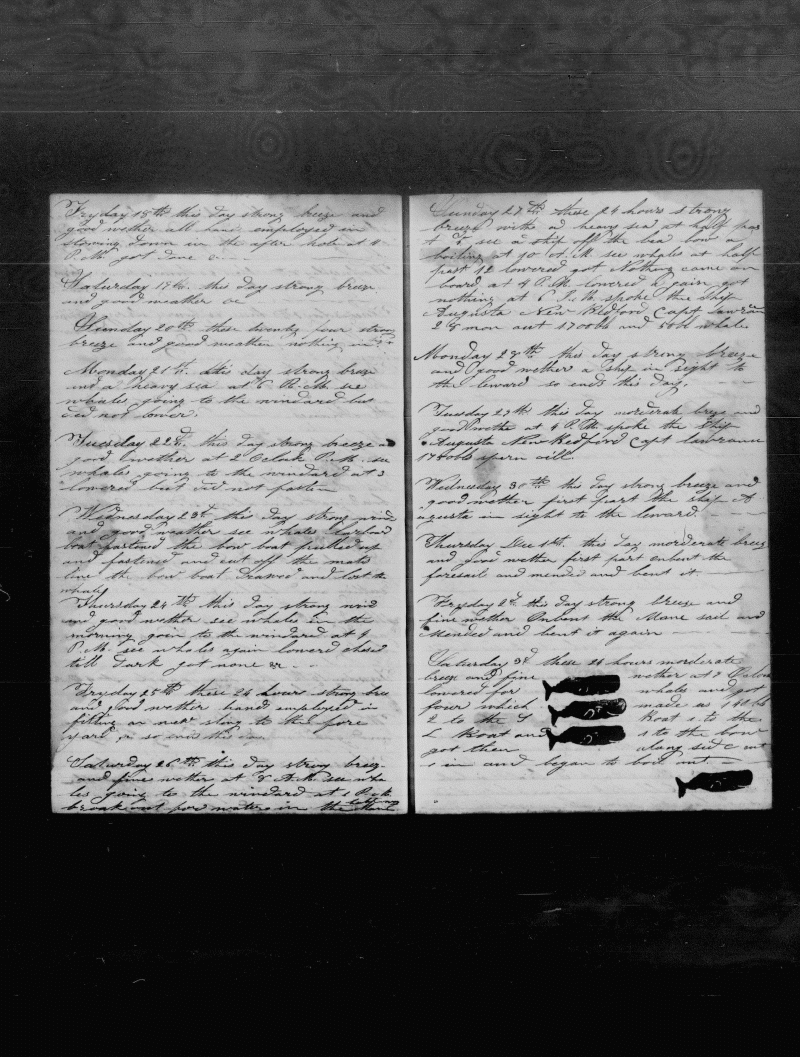 Fryday 18th this day strong breeze and
good wether all hands employed in
stowing down in the after hole at 4
P.M. got done
Saturday 19th. this day strong breeze
and good weather
Sunday 20th these twenty four strong
breeze and good weather nothing in
Monday 21st. this day strong breeze
and a heavy sea at 6 P.M. see
whales going to the windard but
did not lower.
Tuesday 22d. this day strong breeze a
good wether at 2 Oclock P.M. see
whales going to the windard at 3
lowered but did not fasten
Wednesday 23d this day strong wind
and good weather see whales Larbord
boat fastened the bow boat pulled up
and fastened and cut off the mats
line the bow boat drawed and lost the
whale
Thursday 24th this day strong wind
and good wether see whales in the
morning goin to the windard at 4
P.M. see whales again lowered chased
till dark got none
Fryday 25th these 24 hours strong bree
and good wether hands employed in
fitting an new sling to the fore
yard so ends this
Saturday 26th this day strong breeze
and fine wether at 8 A.M. see wha
les going to the windard at 1 P.M.
break out for water in the
Sunday 27th these 24 hours strong
breeze with a heavy sea at half pas
t 5 see a ship off the bow a
boiling at 10 A.M. see whales at half
past 12 lowered got Nothing came on
board at 4 P.M. lowered again got
nothing at 6 P.M. spoke the Ship
Augusta New Bedford Capt Lawran
28 mon out 1700bb and whale
Monday 28th this day strong breeze
and good wether a ship in sight to
the leward so ends this day.
Tuesday 29th this day morderate breze and
good wether at 4 P.M. spoke the Ship
Augusta New Bedford Capt Lawrance
1750bb sperm oill
Wednesday 30th this day strong breeze and
good wether first part the ship A
ugusta in sight to the leward.
Thursday Dec 1st. this day morderate breeze
and good wether first part onbent the
foresail and mended and bent it
Fryday 2d this day strong breeze and
fine wether Onbent the Mane sail and
Mended and bent it again
Saturday 3d these 24 hours morderate
breze and fine wether at 7 Oclock
lowered for whales and got
fouer which made us
2 to the Boat 1 to the
L Boat and 1 to the bow
got them along side cut
in and began to boil out